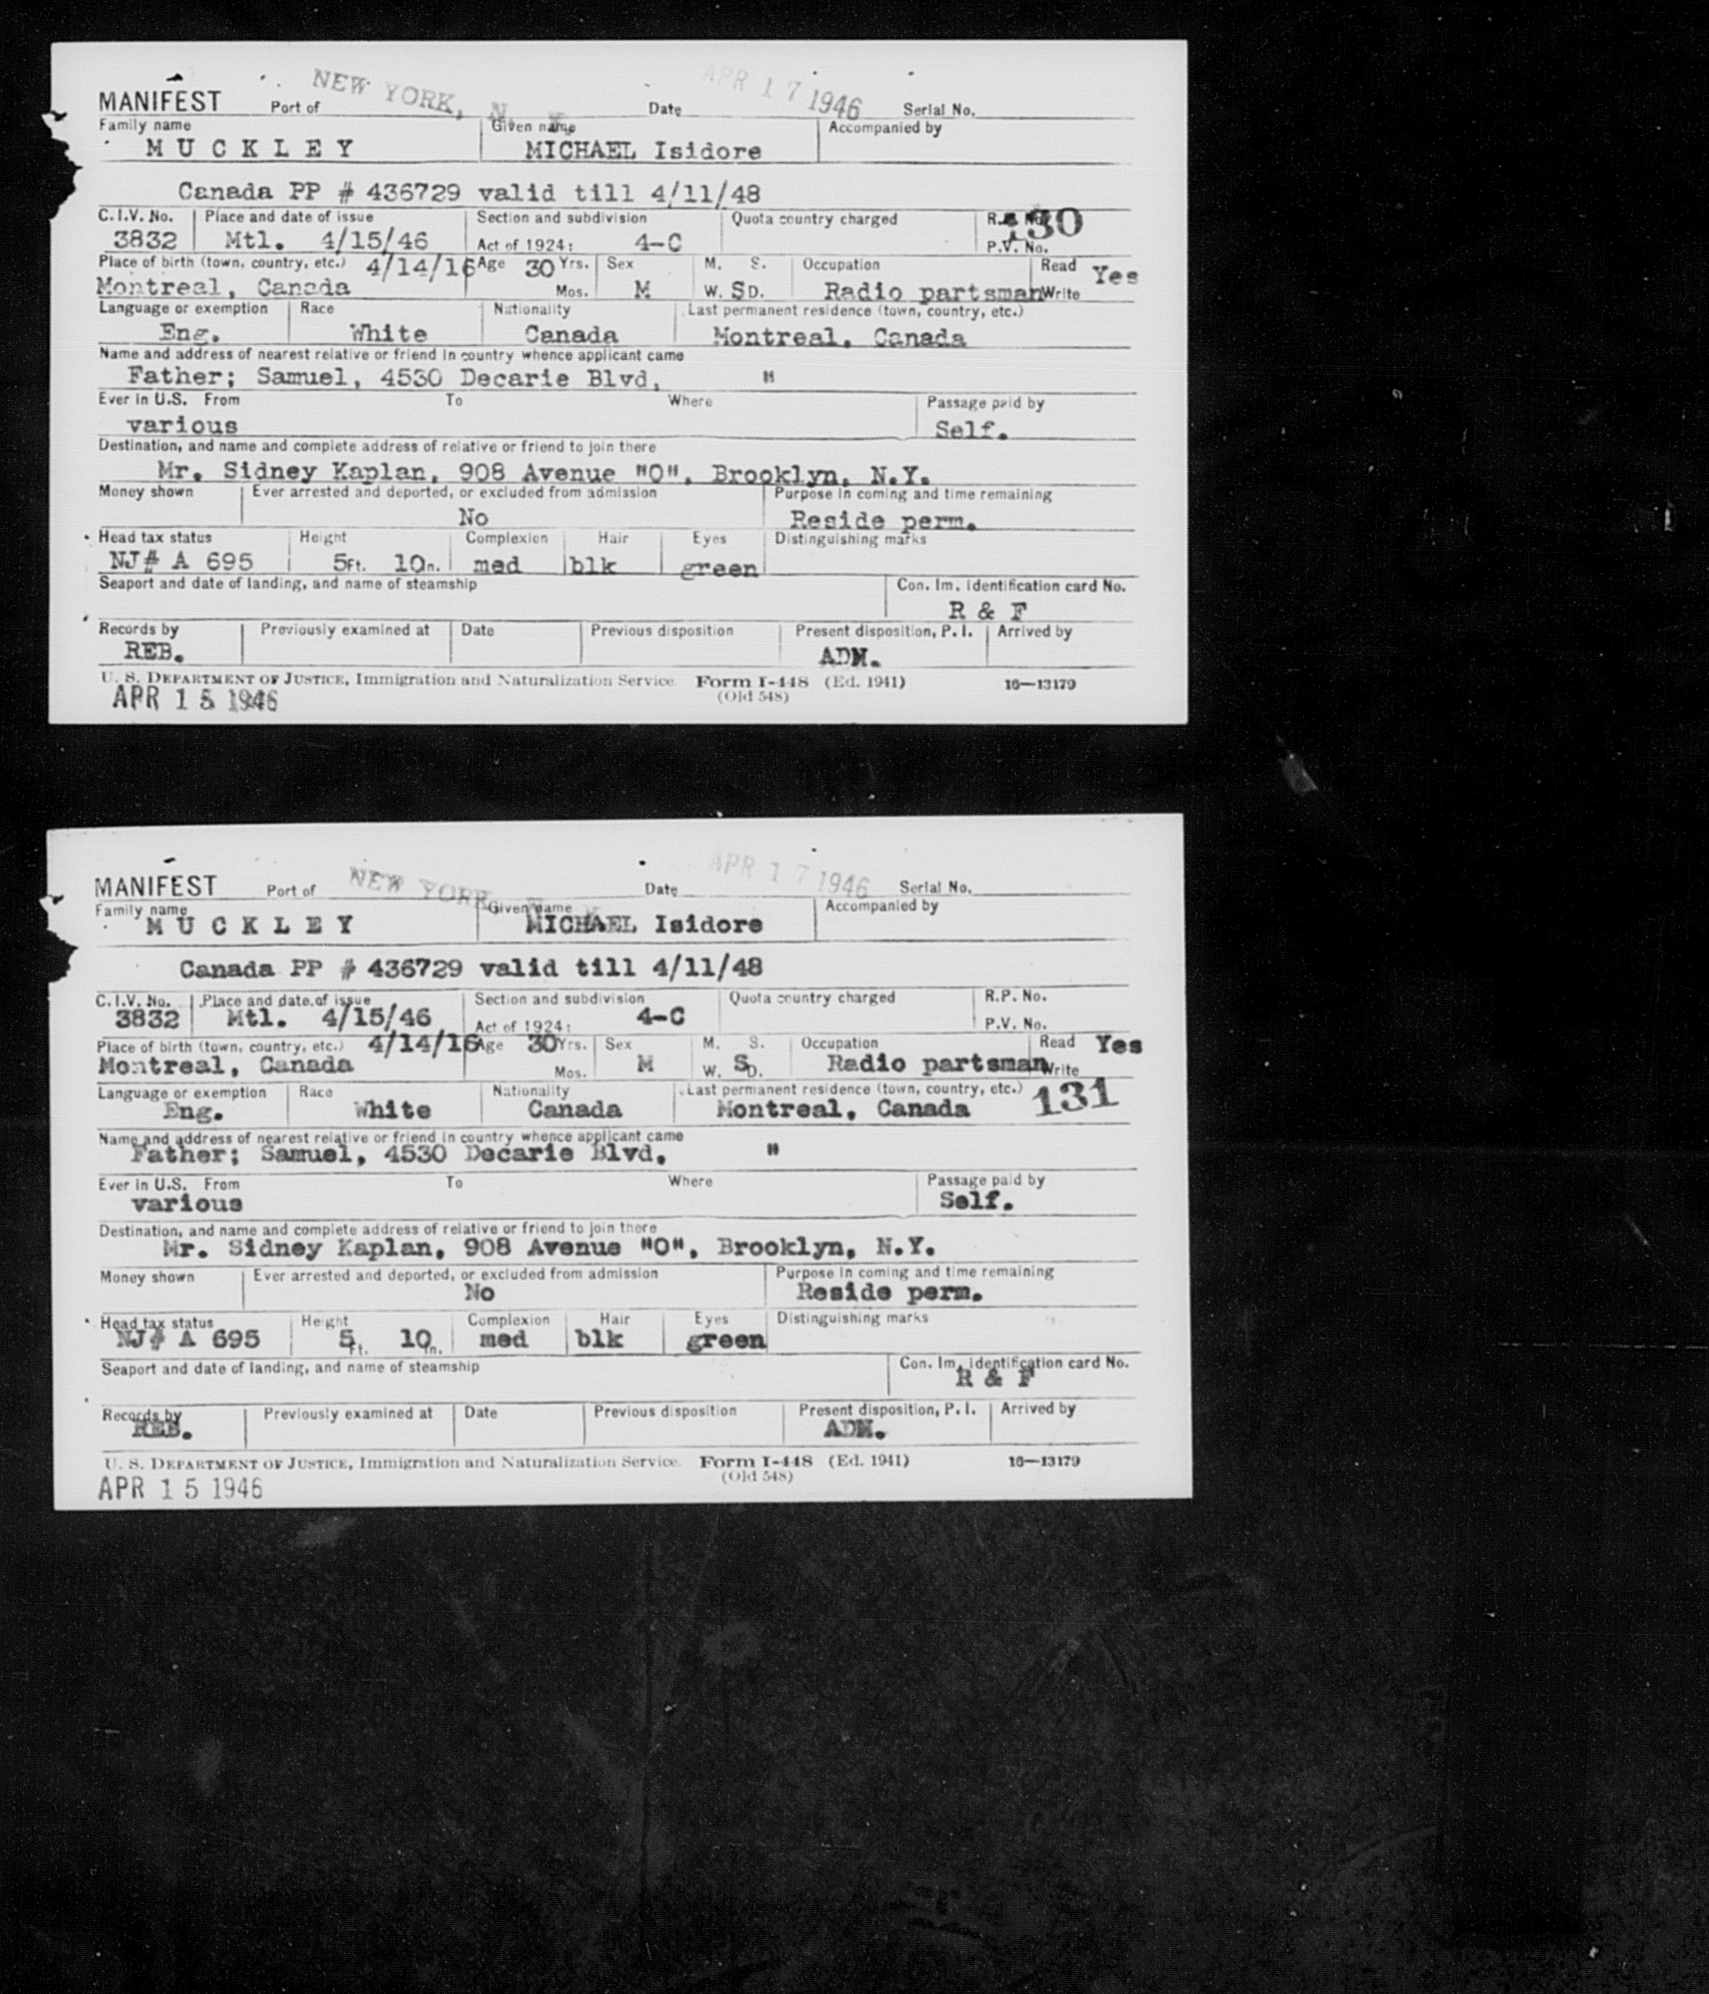 NEW YORK, N. Y. APR 17 1946
MANIFEST Port of Date Serial No.
Family name Given name Accompanied by
MUCKLEY MICHAEL Isidore
Canada PP # 436729 valid till 4/11/48
C.I.V. No. Place and date of issue Section and subdivision Quota country charged R.P. No. 130
3832 Mtl. 4/15/46 Act of 1924: 4-C P.V. No.
Place of birth (town, country, etc.) 4/14/16 Age 30 Yrs. Sex M. S. Occupation Read Yes
Montreal, Canada Mos. M W. SD. Radio partsman Write
Language or exemption Race Nationality Last permanent residence (town, country, etc.)
Eng. White Canada Montreal, Canada
Name and address of nearest relative or friend in country whence applicant came
Father; Samuel, 4530 Decarie Blvd, "
Ever in U.S. From To Where Passage paid by
various Self.
Destination, and name and complete address of relative or friend to join there
Mr. Sidney Kaplan, 908 Avenue "O", Brooklyn, N.Y.
Money shown Ever arrested and deported, or excluded from admission Purpose in coming and time remaining
No Reside perm.
Head tax status Height Complexion Hair Eyes Distinguishing marks
NJ# A 695 5Ft. 10n. med blk green
Seaport and date of landing, and name of steamship Con. Im. identification card No.
R & F
Records by Previously examined at Date Previous disposition Present disposition, P. I. Arrived by
REB. ADM.
U. S. DEPARTMENT OF JUSTICE, Immigration and Naturalization Service. Form I-448 (Ed. 1941) 16—13179
(Old 548)
APR 15 1946
NEW YORK APR 17 1946
MANIFEST Port of Date Serial No.
Family name Given name Accompanied by
MUCKLEY MICHAEL Isidore
Canada PP # 436729 valid till 4/11/48
C.I.V. No. Place and date of issue Section and subdivision Quota country charged R.P. No.
3832 Mtl. 4/15/46 Act of 1924: 4-C P.V. No.
Place of birth (town, country, etc.) 4/14/16 Age 30 Yrs. Sex M. S. Occupation Read Yes
Montreal, Canada Mos. M W. SD. Radio partsman Write
Language or exemption Race Nationality Last permanent residence (town, country, etc.) 131
Eng. White Canada Montreal, Canada
Name and address of nearest relative or friend in country whence applicant came
Father; Samuel, 4530 Decarie Blvd, "
Ever in U.S. From To Where Passage paid by
various Self.
Destination, and name and complete address of relative or friend to join there
Mr. Sidney Kaplan, 908 Avenue "O", Brooklyn, N.Y.
Money shown Ever arrested and deported, or excluded from admission Purpose in coming and time remaining
No Reside perm.
Head tax status Height Complexion Hair Eyes Distinguishing marks
NJ# A 695 5 ft. 10 n. med blk green
Seaport and date of landing, and name of steamship Con. Im. identification card No.
R & F
Records by Previously examined at Date Previous disposition Present disposition, P. I. Arrived by
REB. ADM.
U. S. DEPARTMENT OF JUSTICE, Immigration and Naturalization Service. Form I-448 (Ed. 1941) 16—13179
(Old 548)
APR 15 1946